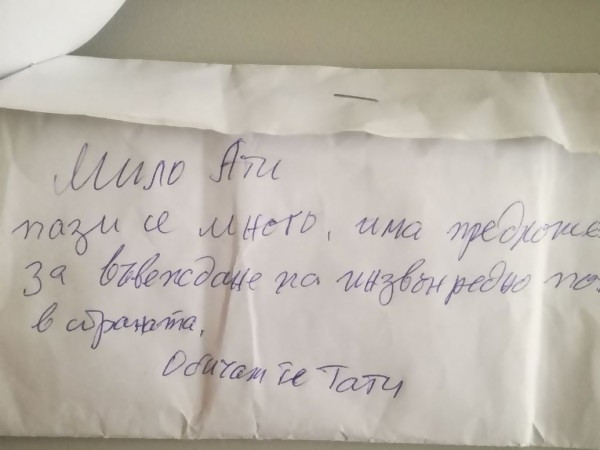 Мило Ати
пази се много, има предложе
за въвеждане на извънредно по
в страната.
Обичам те Тати